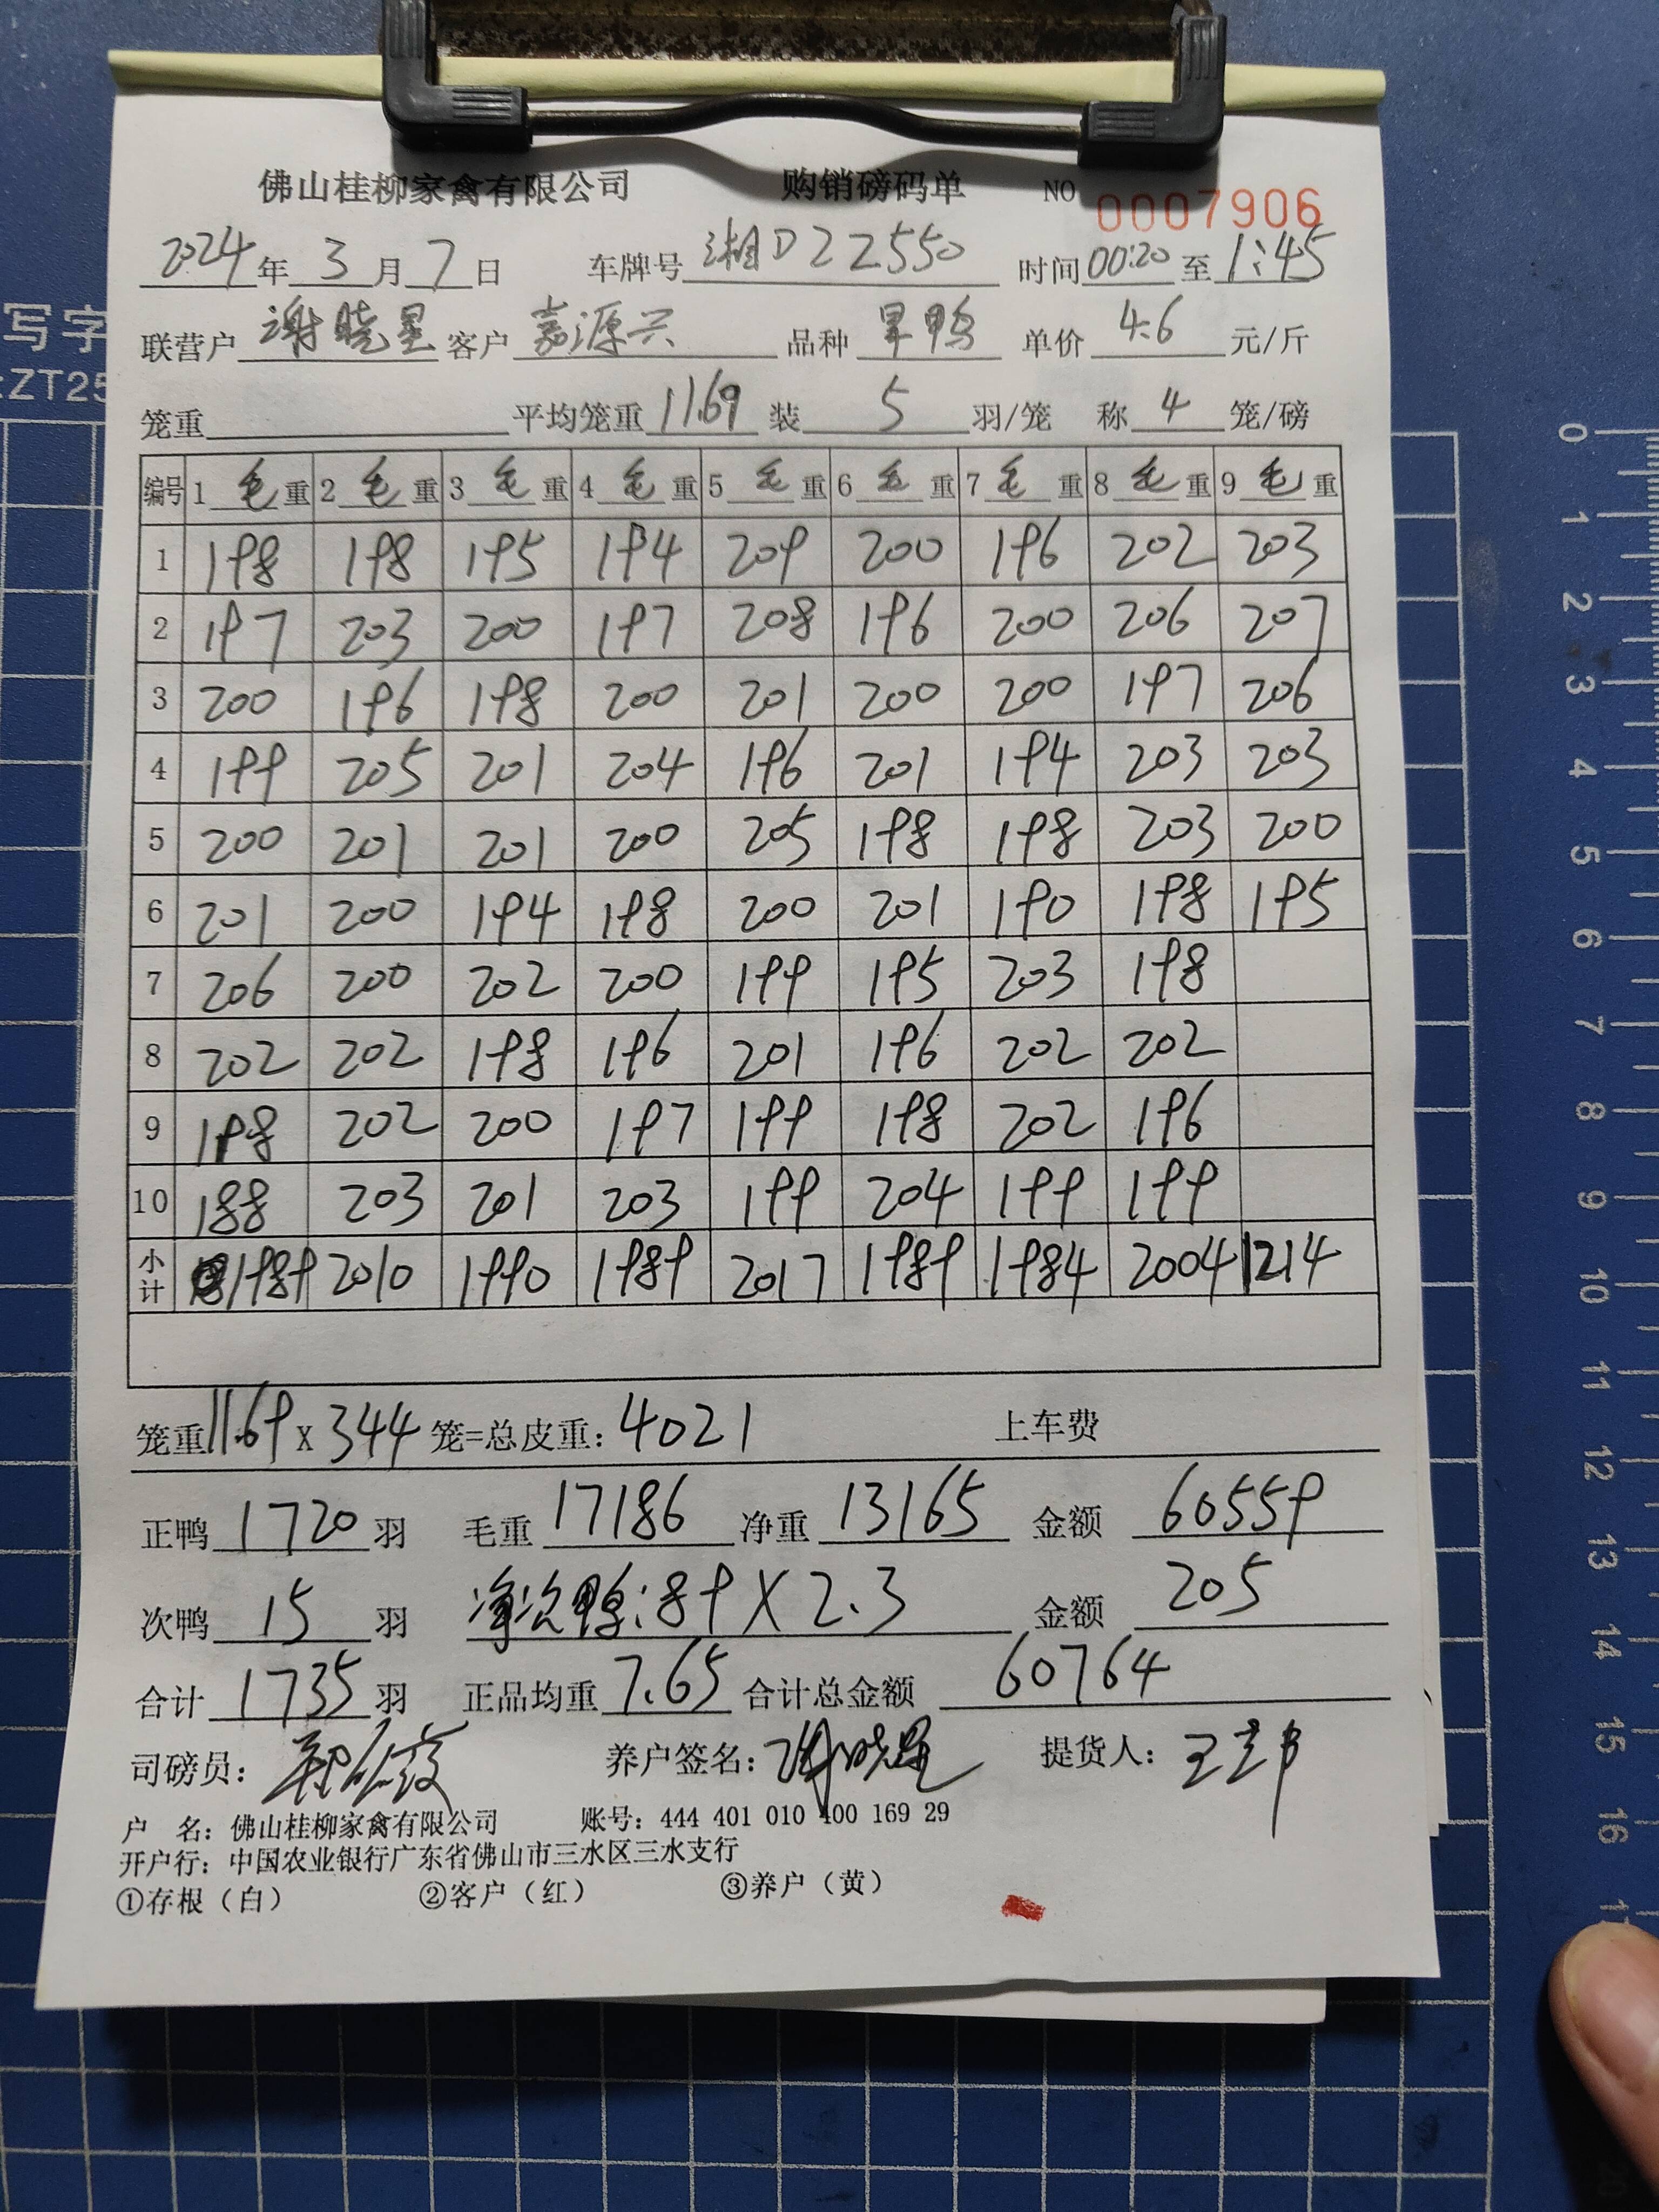 佛山桂柳家禽有限公司 购销磅码单 NO 0007906
2024年3月7日 车牌号湘D22550 时间00:20至1:45
联营户谢晓星 客户嘉源兴 品种旱鸭 单价4.6元/斤
笼重 平均笼重11.69 装5羽/笼 称4笼/磅
编号 1毛重 2毛重 3毛重 4毛重 5毛重 6毛重 7毛重 8毛重 9毛重
1 198 198 195 194 209 200 196 202 203
2 197 203 200 197 208 196 200 206 207
3 200 196 198 200 201 200 200 197 206
4 199 205 201 204 196 201 194 203 203
5 200 201 201 200 205 198 198 203 200
6 201 200 194 198 200 201 190 198 195
7 206 200 202 200 199 195 203 198
8 202 202 198 196 201 196 202 202
9 198 202 200 197 199 198 202 196
10 188 203 201 203 199 204 199 199
小计 1989 2010 1990 1989 2017 1989 1984 2004 1214
笼重11.69 X 344笼=总皮重: 4021 上车费
正鸭1720羽 毛重17186 净重13165 金额60559
次鸭15羽 净次鸭:89X2.3 金额205
合计1735羽 正品均重7.65 合计总金额60764
司磅员: 养户签名:谢晓星 提货人:
户 名: 佛山桂柳家禽有限公司 账号: 444 401 010 400 169 29
开户行: 中国农业银行广东省佛山市三水区三水支行
①存根（白） ②客户（红） ③养户（黄）
写字
:ZT25
0
1
2
3
4
5
6
7
8
9
10
11
12
13
14
15
16